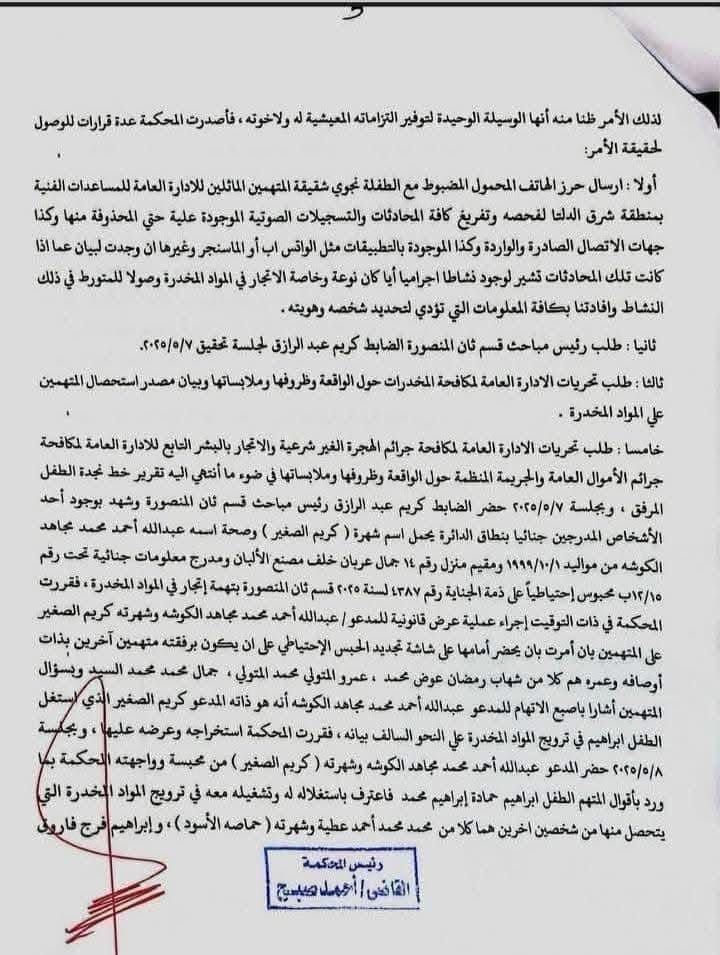 لذلك الأمر ظنا منه أنها الوسيلة الوحيدة لتوفير التزاماته المعيشية له ولاخوته ، فأصدرت المحكمة عدة قرارات للوصول
لحقيقة الأمر:
أولا : ارسال حرز الهاتف المحمول المضبوط مع الطفلة نجوي شقيقة المتهمين الماثلين للادارة العامة للمساعدات الفنية
بمنطقة شرق الدلتا لفحصه وتفريغ كافة المحادثات والتسجيلات الصوتية الموجودة علية حتي المحذوفة منها وكذا
جهات الاتصال الصادرة والواردة وكذا الموجودة بالتطبيقات مثل الواتس اب أو الماسنجر وغيرها ان وجدت لبيان عما اذا
كانت تلك المحادثات تشير لوجود نشاطا اجراميا أيا كان نوعة وخاصة الاتجار في المواد المخدرة وصولا للمتورط في ذلك
النشاط وافادتنا بكافة المعلومات التي تؤدي لتحديد شخصه وهويته .
ثانيا : طلب رئيس مباحث قسم ثان المنصورة الضابط كريم عبد الرازق لجلسة تحقيق ٢٠٢٥/٥/٧.
ثالثا : طلب تحريات الادارة العامة لمكافحة المخدرات حول الواقعة وظروفها وملابساتها وبيان مصدر استحصال المتهمين
علي المواد المخدرة .
خامسا : طلب تحريات الادارة العامة لمكافحة جرائم الهجرة الغير شرعية والاتجار بالبشر التابع للادارة العامة لمكافحة
جرائم الأموال العامة والجريمة المنظمة حول الواقعة وظروفها وملابساتها في ضوء ما أنتهي اليه تقرير خط نجدة الطفل
المرفق ، وبجلسة ٢٠٢٥/٥/٧ حضر الضابط كريم عبد الرازق رئيس مباحث قسم ثان المنصورة وشهد بوجود أحد
الأشخاص المدرجين جنائيا بنطاق الدائرة يحمل اسم شهرة ( كريم الصغير ) وصحة اسمه عبدالله أحمد محمد مجاهد
الكوشه من مواليد ١٩٩٩/١٠/١ ومقيم منزل رقم ١٤ جمال عريان خلف مصنع الألبان ومدرج معلومات جنائية تحت رقم
١٢/١٥ب محبوس إحتياطياً على ذمة الجناية رقم ٤٣٨٧ لسنة ٢٠٢٥ قسم ثان المنصورة بتهمة إتجار في المواد المخدرة ، فقررت
المحكمة في ذات التوقيت إجراء عملية عرض قانونية للمدعو / عبدالله أحمد محمد مجاهد الكوشه وشهرته كريم الصغير
علي المتهمين بان أمرت بان يحضر أمامها على شاشة تجديد الحبس الإحتياطي على ان يكون برفقته متهمين آخرين بذات
أوصافه وعمره هم كلا من شهاب رمضان عوض محمد ، عمرو المتولي محمد المتولي ، جمال محمد محمد السيد وبسؤال
المتهمين أشارا باصبع الاتهام للمدعو عبدالله أحمد محمد مجاهد الكوشه أنه هو ذاته المدعو كريم الصغير الذي استغل
الطفل ابراهيم في ترويج المواد المخدرة علي النحو السالف بيانه ، فقررت المحكمة استخراجه وعرضه عليها ، وبجلسة
٢٠٢٥/٥/٨ حضر المدعو عبدالله أحمد محمد مجاهد الكوشه وشهرته ( كريم الصغير ) من محبسة وواجهته المحكمة بما
ورد بأقوال المتهم الطفل ابراهيم حمادة إبراهيم محمد فاعترف باستغلاله له وتشغيله معه في ترويج المواد المخدرة التي
يتحصل منها من شخصين اخرين هما كلا من محمد محمد أحمد عطية وشهرته ( حماصه الأسود ) ، و إبراهيم فرج فاروق
رئيس المحكمة
القاضى / أحمد صبيح